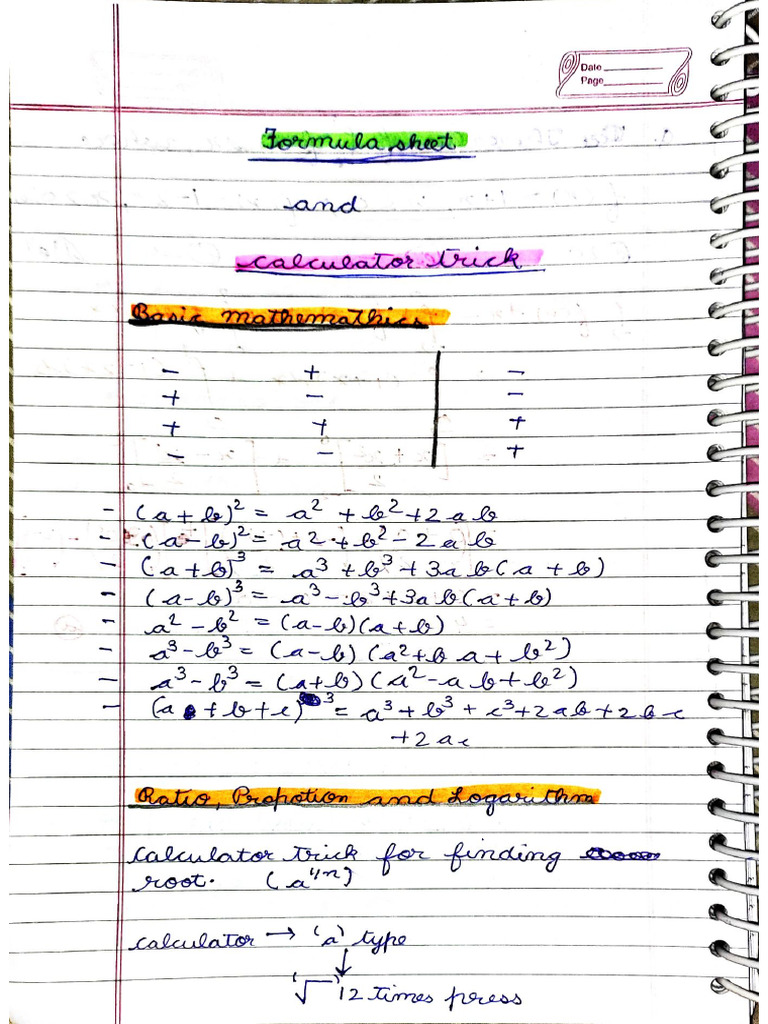 Date
Page
Formula sheet
and
calculator trick
Basic mathemathics
- + -
+ - -
+ + +
- - +
- (a + b)² = a² + b² + 2ab
- (a - b)² = a² + b² - 2ab
- (a + b)³ = a³ + b³ + 3ab(a + b)
- (a - b)³ = a³ - b³ + 3ab(a + b)
- a² - b² = (a - b)(a + b)
- a³ - b³ = (a - b)(a² + ba + b²)
- a³ - b³ = (a + b)(a² - ab + b²)
- (a + b + c)³ = a³ + b³ + c³ + 2ab + 2bc
+ 2ac
Ratio, Propotion and Logarithm
calculator trick for finding
root. (a^1/n)
calculator → 'a' type
↓
'√' 12 times press